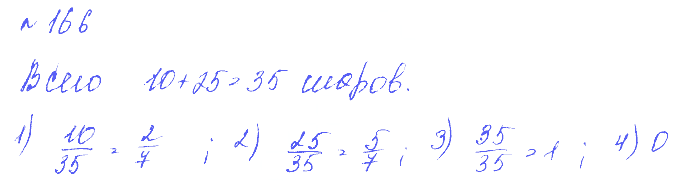 № 166
Всего 10+25=35 шаров.
1) 10/35 = 2/7 ; 2) 25/35 = 5/7 ; 3) 35/35 = 1 ; 4) 0